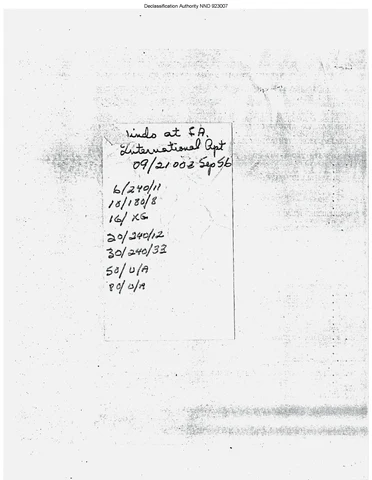 Declassification Authority NND 923007
Winds at L.A.
International Apt
09/2100Z Sep 56
6/240/11
10/180/8
16/ XG
20/240/12
30/240/33
50/ U/A
80/ U/A